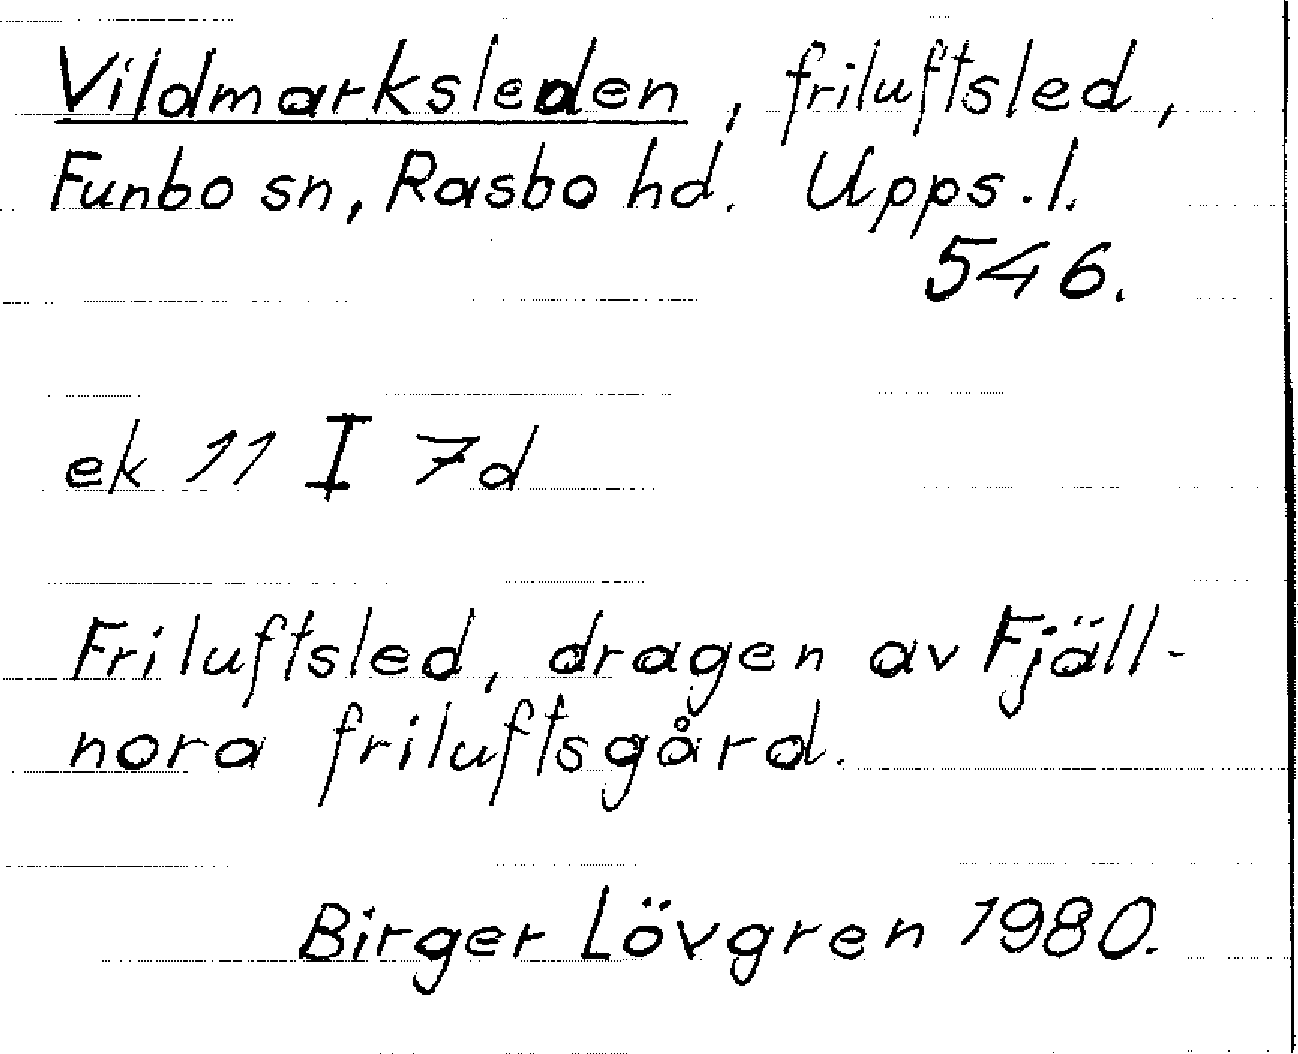 Vildmarksleden, friluftsled,
Funbo sn, Rasbo hd. Upps. l.
546.
ek 11 I 7d
Friluftsled, dragen av Fjäll-
nora friluftsgård.
Birger Lövgren 1980.